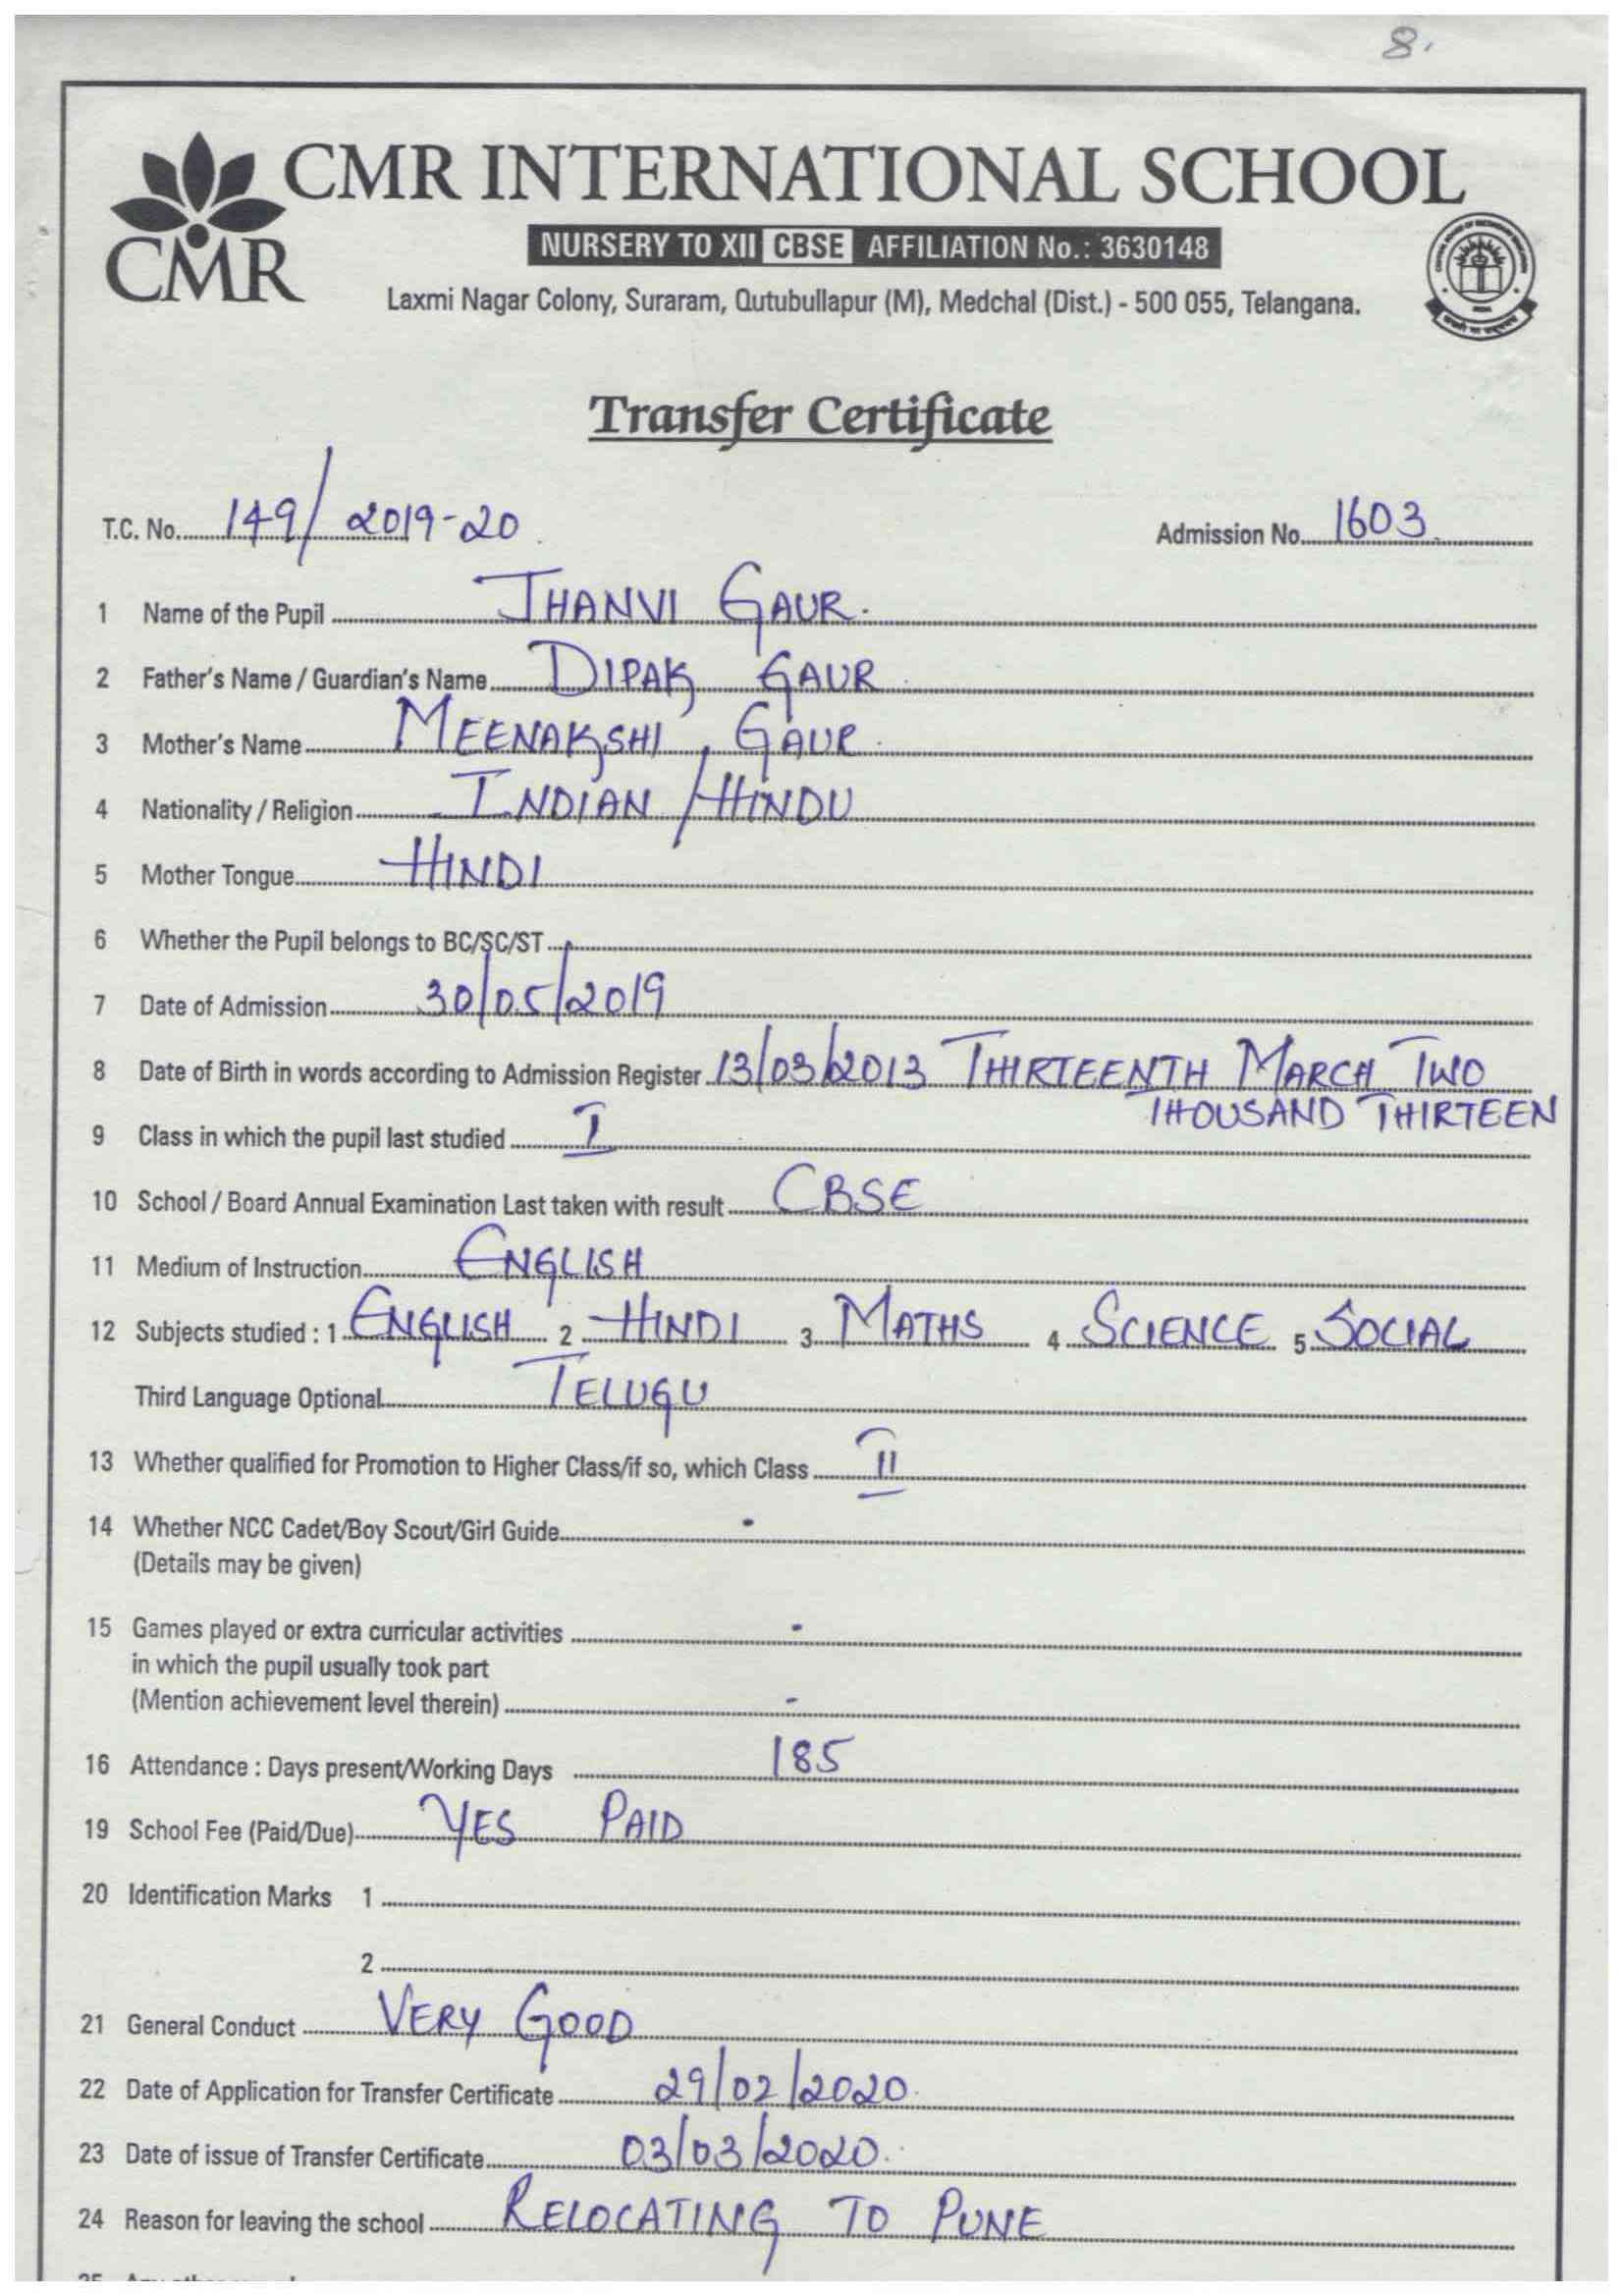 8.
CMR INTERNATIONAL SCHOOL
CMR
NURSERY TO XII CBSE AFFILIATION No.: 3630148
Laxmi Nagar Colony, Suraram, Qutubullapur (M), Medchal (Dist.) - 500 055, Telangana.
Transfer Certificate
T.C. No. 149/2019-20. Admission No. 1603.
1 Name of the Pupil JHANVI GAUR.
2 Father's Name / Guardian's Name DIPAK GAUR.
3 Mother's Name MEENAKSHI GAUR.
4 Nationality / Religion INDIAN / HINDU
5 Mother Tongue HINDI
6 Whether the Pupil belongs to BC/SC/ST
7 Date of Admission 30/05/2019
8 Date of Birth in words according to Admission Register 13/03/2013 THIRTEENTH MARCH TWO
THOUSAND THIRTEEN
9 Class in which the pupil last studied I
10 School / Board Annual Examination Last taken with result CBSE
11 Medium of Instruction ENGLISH
12 Subjects studied : 1 ENGLISH 2 HINDI 3 MATHS 4 SCIENCE 5 SOCIAL
Third Language Optional TELUGU
13 Whether qualified for Promotion to Higher Class/if so, which Class II
14 Whether NCC Cadet/Boy Scout/Girl Guide -
(Details may be given)
15 Games played or extra curricular activities -
in which the pupil usually took part
(Mention achievement level therein) -
16 Attendance : Days present/Working Days 185
19 School Fee (Paid/Due) YES PAID
20 Identification Marks 1
2
21 General Conduct VERY GOOD
22 Date of Application for Transfer Certificate 29/02/2020.
23 Date of issue of Transfer Certificate 03/03/2020.
24 Reason for leaving the school RELOCATING TO PUNE